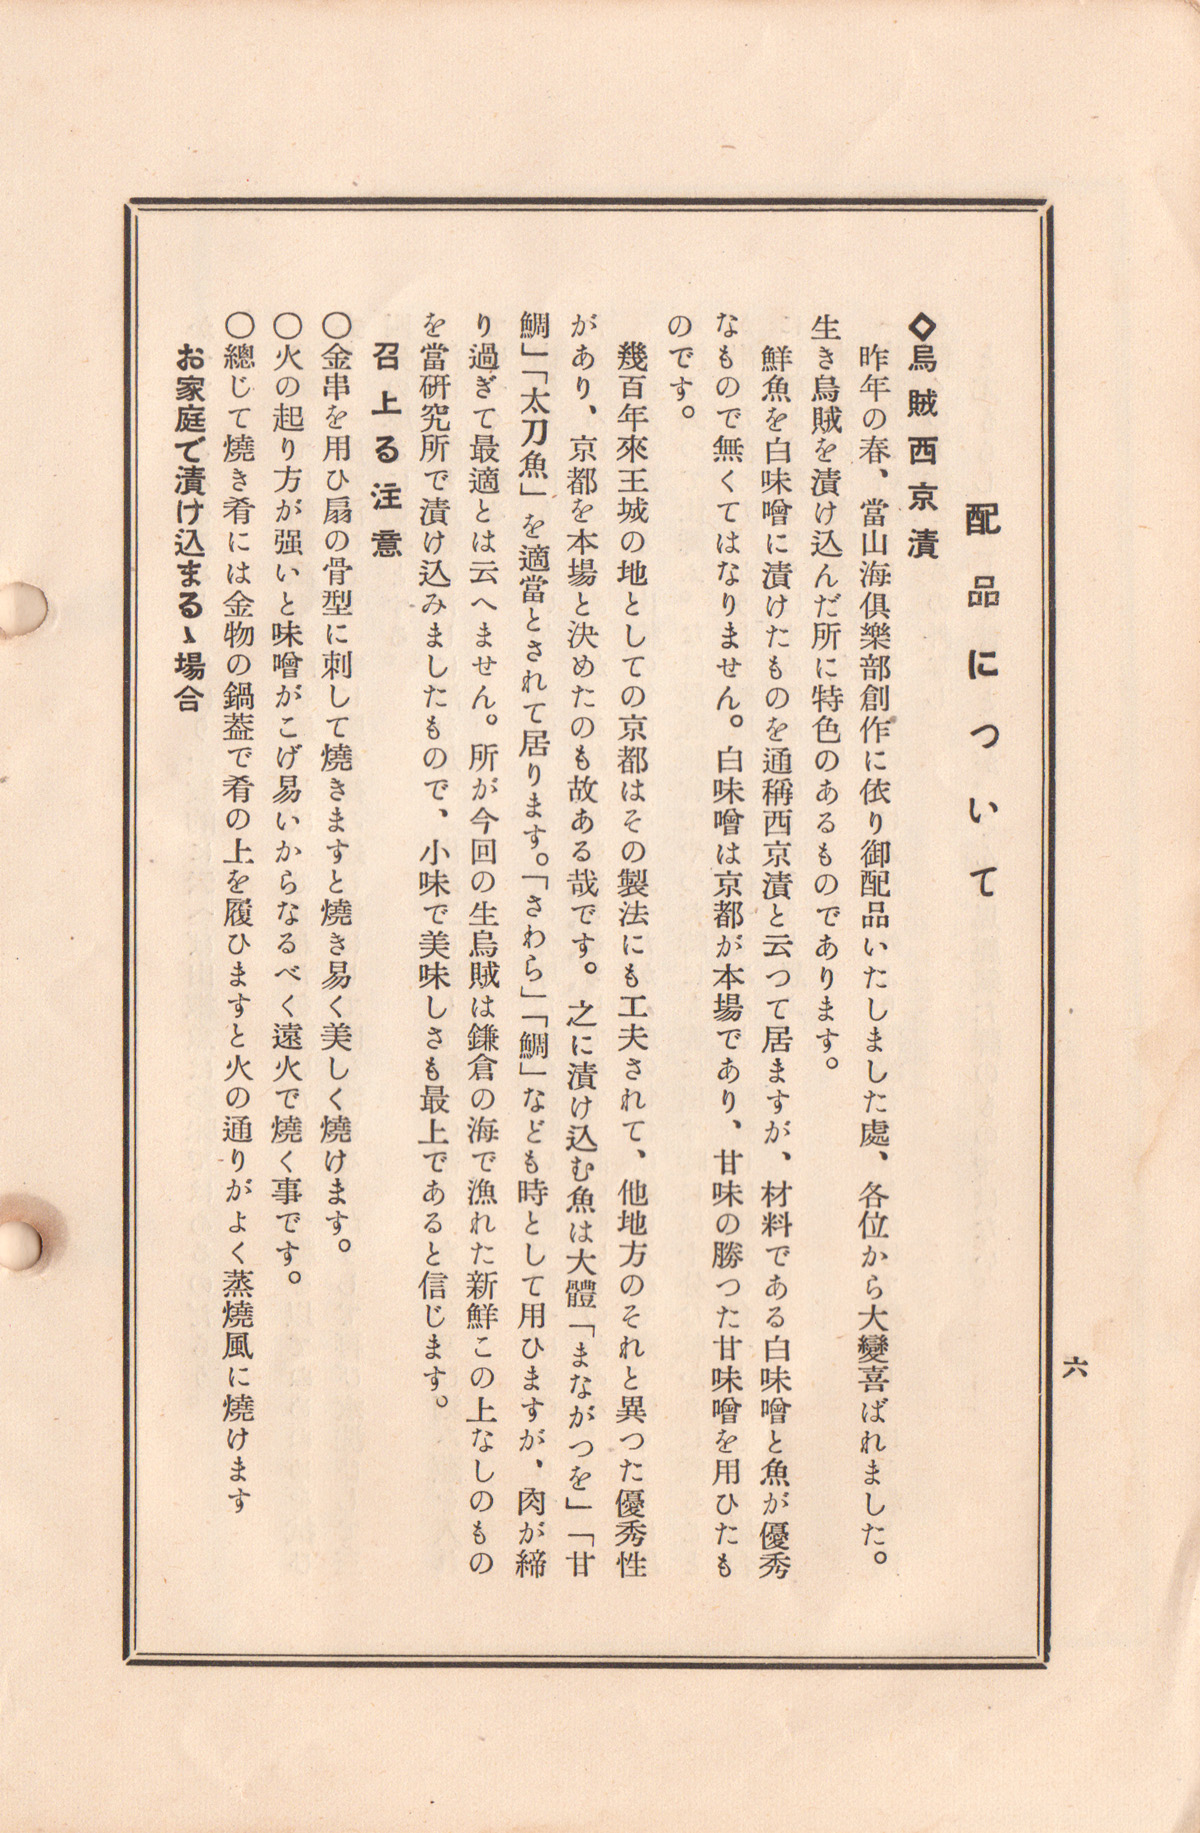 配品について
◇烏賊西京漬
昨年の春、當山海倶樂部創作に依り御配品いたしました處、各位から大變喜ばれました。
生き烏賊を漬け込んだ所に特色のあるものであります。
鮮魚を白味噌に漬けたものを通稱西京漬と云つて居ますが、材料である白味噌と魚が優秀
なもので無くてはなりません。白味噌は京都が本場であり、甘味の勝つた甘味噌を用ひたも
のです。
幾百年來王城の地としての京都はその製法にも工夫されて、他地方のそれと異つた優秀性
があり、京都を本場と決めたのも故ある哉です。之に漬け込む魚は大體「まながつを」「甘
鯛」「太刀魚」を適當とされて居ります。「さわら」「鯛」なども時として用ひますが、肉が締
り過ぎて最適とは云へません。所が今回の生烏賊は鎌倉の海で漁れた新鮮この上なしのもの
を當研究所で漬け込みましたもので、小味で美味しさも最上であると信じます。
召上る注意
〇金串を用ひ扇の骨型に刺して燒きますと燒き易く美しく燒けます。
〇火の起り方が强いと味噌がこげ易いからなるべく遠火で燒く事です。
〇總じて燒き肴には金物の鍋蓋で肴の上を履ひますと火の通りがよく蒸燒風に燒けます
お家庭で漬け込まるゝ場合
六